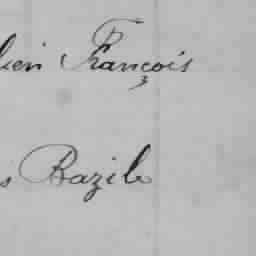 lien François
s Bazile